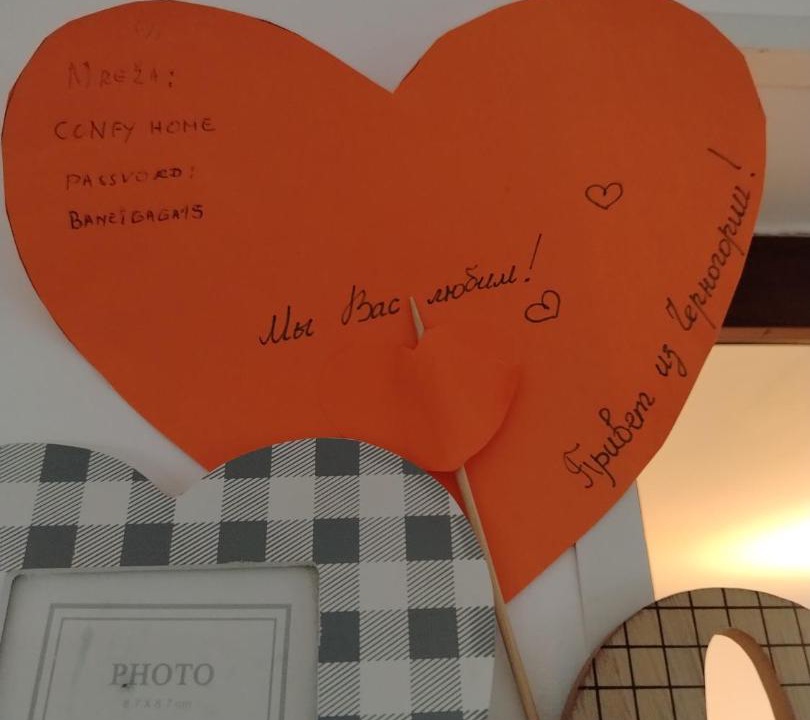 MREŽA:
CCNFY HOME
PASSVORD:
BANEIGAGA95
Мы Вас любим!
Привет из Черногории!
PHOTO